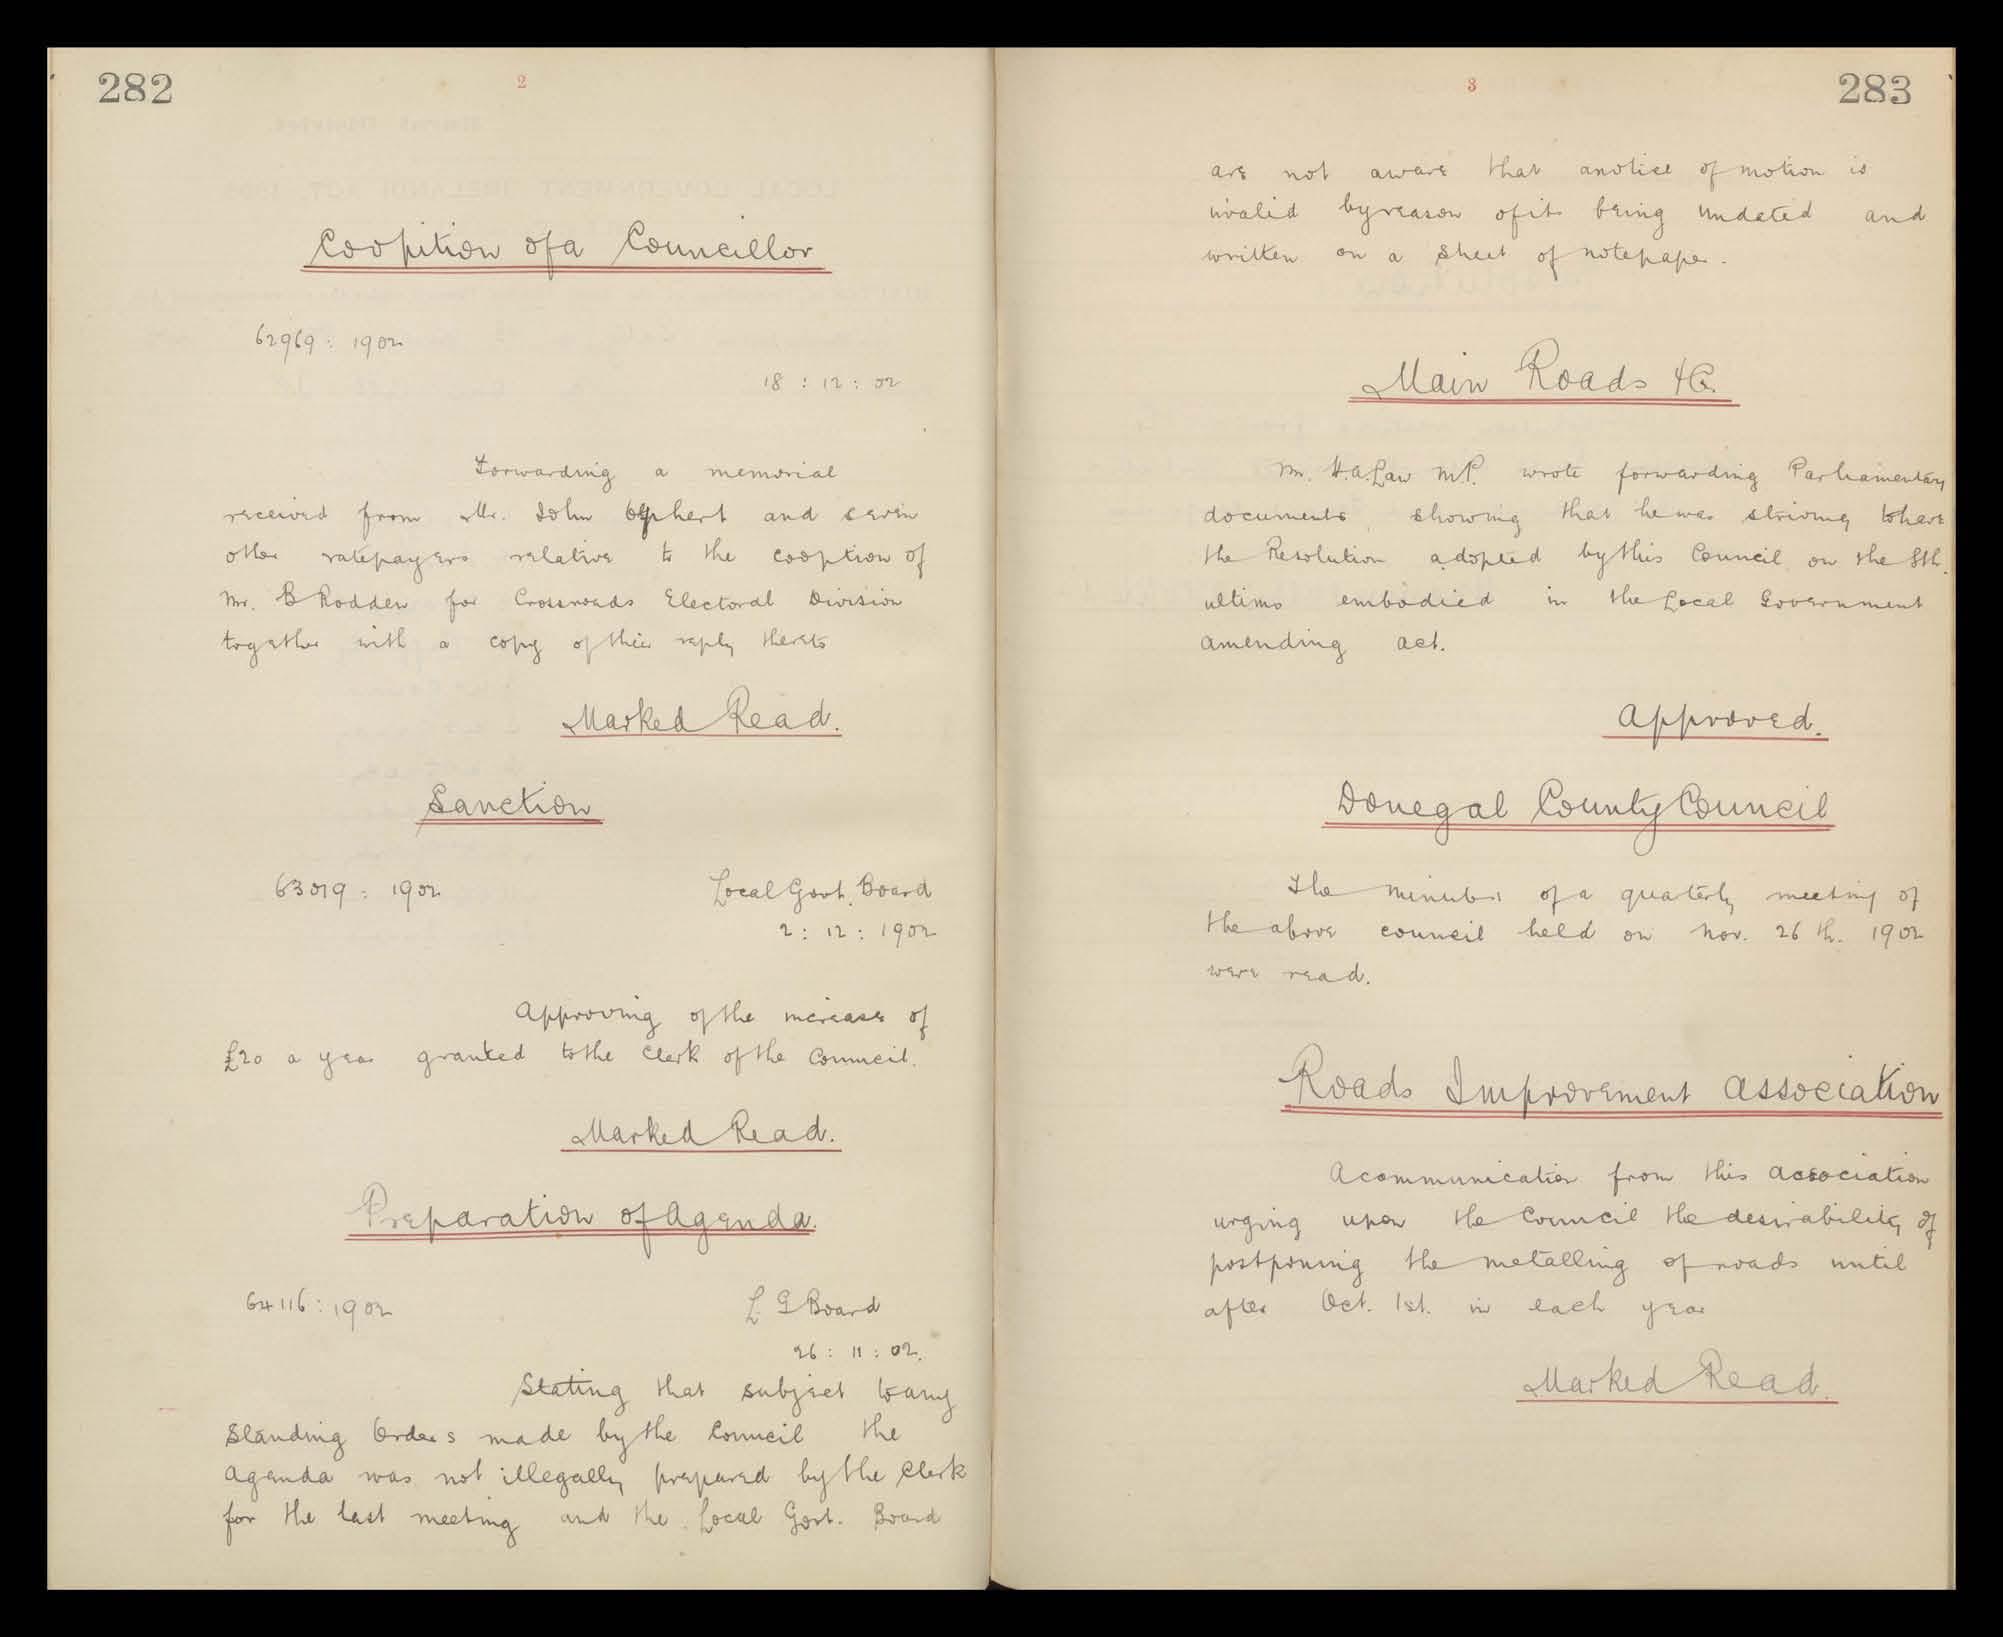 282
2
Cooption of a Councillor
62969 : 1902
18 : 12 : 02
Forwarding a memorial
received from Mr. John Olphert and seven
other ratepayers relative to the cooption of
Mr. B Rodden for Crossroads Electoral Division
together with a copy of their reply thereto
Marked Read.
Sanction
63019 : 1902
Local Govt. Board
2 : 12 : 1902
Approving of the increase of
£20 a year granted to the Clerk of the Council.
Marked Read.
Preparation of Agenda.
64116 : 1902
L G Board
26 : 11 : 02.
Stating that subject to any
Standing Orders made by the Council the
Agenda was not illegally prepared by the Clerk
for the last meeting and the Local Govt. Board
3
283
are not aware that a notice of motion is
invalid by reason of its being undated and
written on a sheet of notepaper.
Main Roads &c.
Mr. H.A. Law M.P. wrote forwarding Parliamentary
documents, showing that he was striving to have
the Resolution adopted by this Council on the 8th.
ultimo embodied in the Local Government
amending act.
Approved.
Donegal County Council
The minutes of a quarterly meeting of
the above council held on Nov. 26th. 1902
were read.
Roads Improvement Association
A communication from this Association
urging upon the Council the desirability of
postponing the metalling of roads until
after Oct. 1st. in each year
Marked Read.